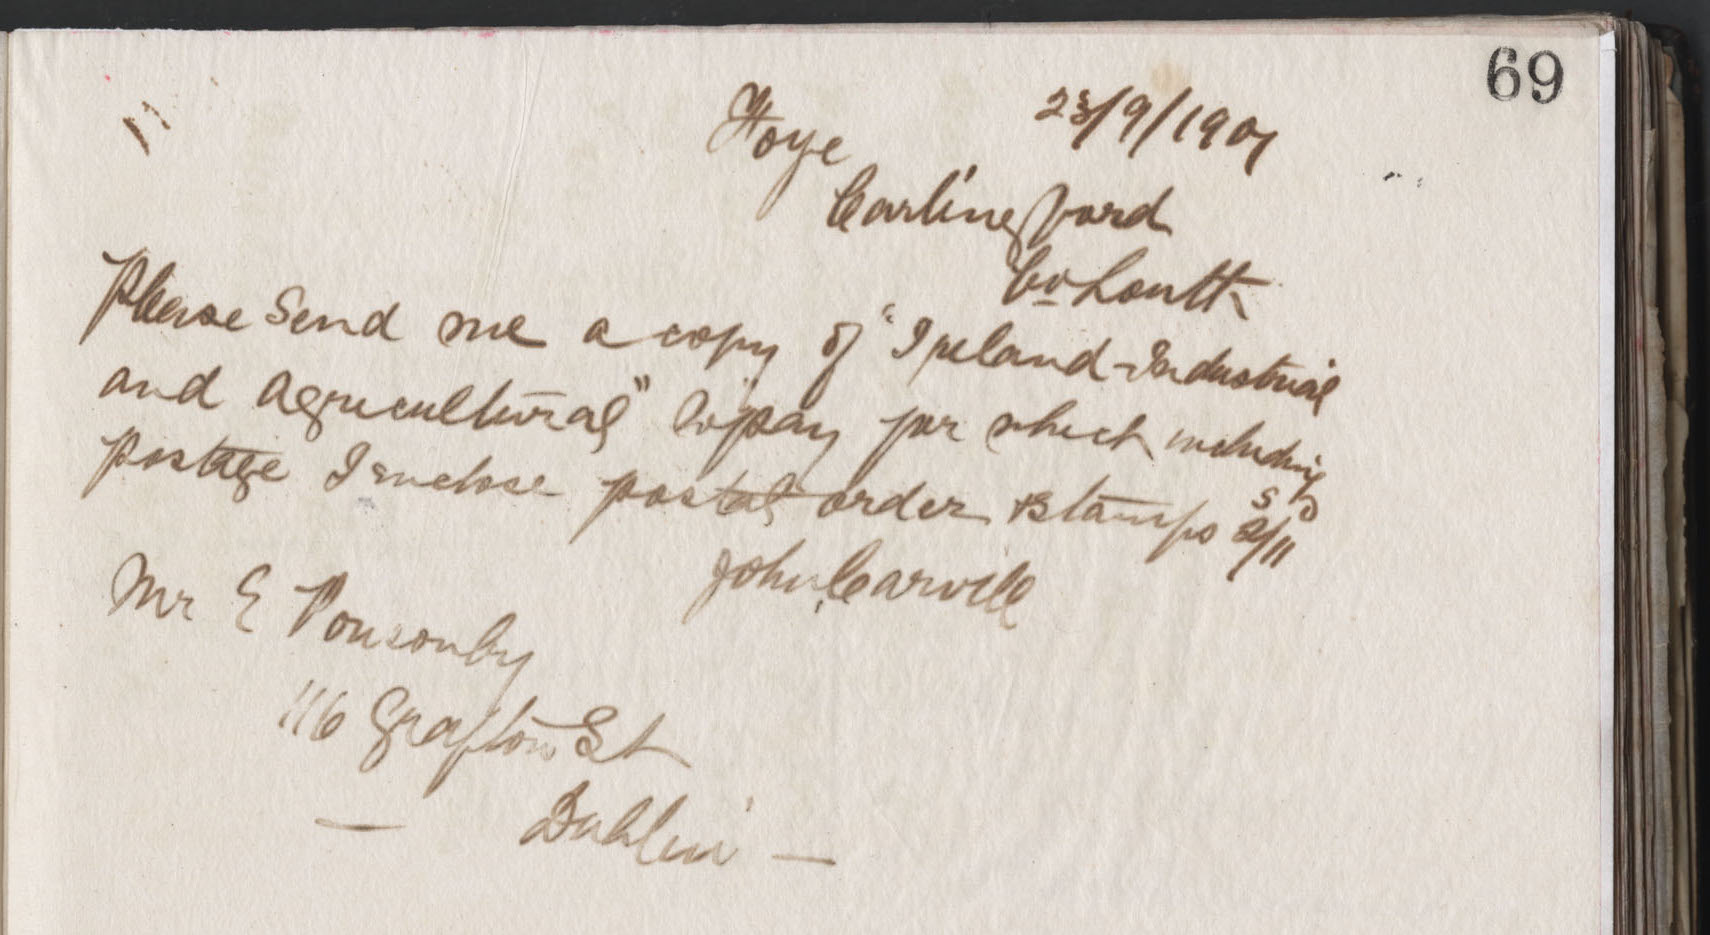 69
Hoye 23/9/1901
Carlingford
Co Louth
Please Send me a copy of "Ireland - Industrial
and Agricultural" To pay for which including
postage I enclose postal order & stamps
S D
2/11
John Carvill
Mr E Ponsonby
116 Grafton St
Dublin